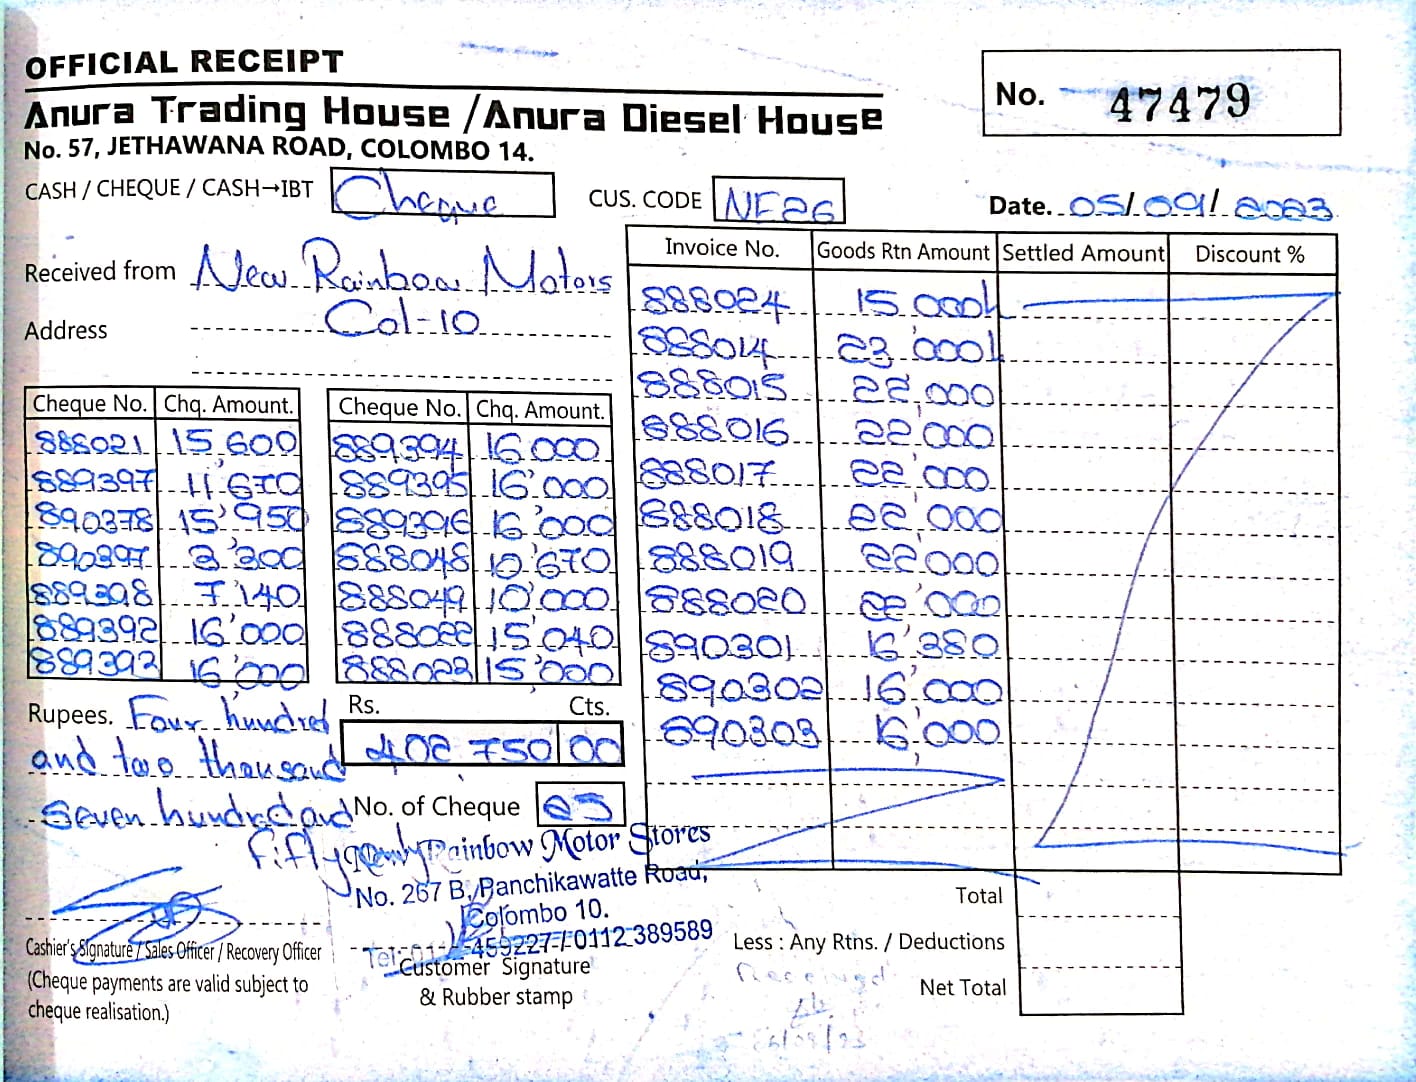 OFFICIAL RECEIPT
Anura Trading House / Anura Diesel House
No. 57, JETHAWANA ROAD, COLOMBO 14.
No. 47479
CASH / CHEQUE / CASH→IBT Cheque
CUS. CODE NF26
Date. 05/09/2023
Received from New Rainbow Motors
Address Col-10
Cheque No. Chq. Amount. Cheque No. Chq. Amount.
888021 15'600 889394 16'000
889397 11'670 889395 16'000
890378 15'950 889396 16'000
890397 3'300 888048 10'670
889398 7'140 888049 10'000
889392 16'000 888022 15'040
889393 16'000 888023 15'000
Invoice No. Goods Rtn Amount Settled Amount Discount %
888024 15'000
888014 23'000
888015 22'000
888016 22'000
888017 22'000
888018 22'000
888019 22'000
888020 22'000
890301 16'380
890302 16'000
890303 16'000
Rupees. Four hundred
and two thousand
Seven hundred and
fifty
Rs. Cts.
402 750 00
No. of Cheque 25
Rainbow Motor Stores
No. 267 B, Panchikawatte Road,
Colombo 10.
459227 / 0112 389589
Cashier's Signature / Sales Officer / Recovery Officer
(Cheque payments are valid subject to
cheque realisation.)
Customer Signature
& Rubber stamp
Total
Less : Any Rtns. / Deductions
Net Total
Received